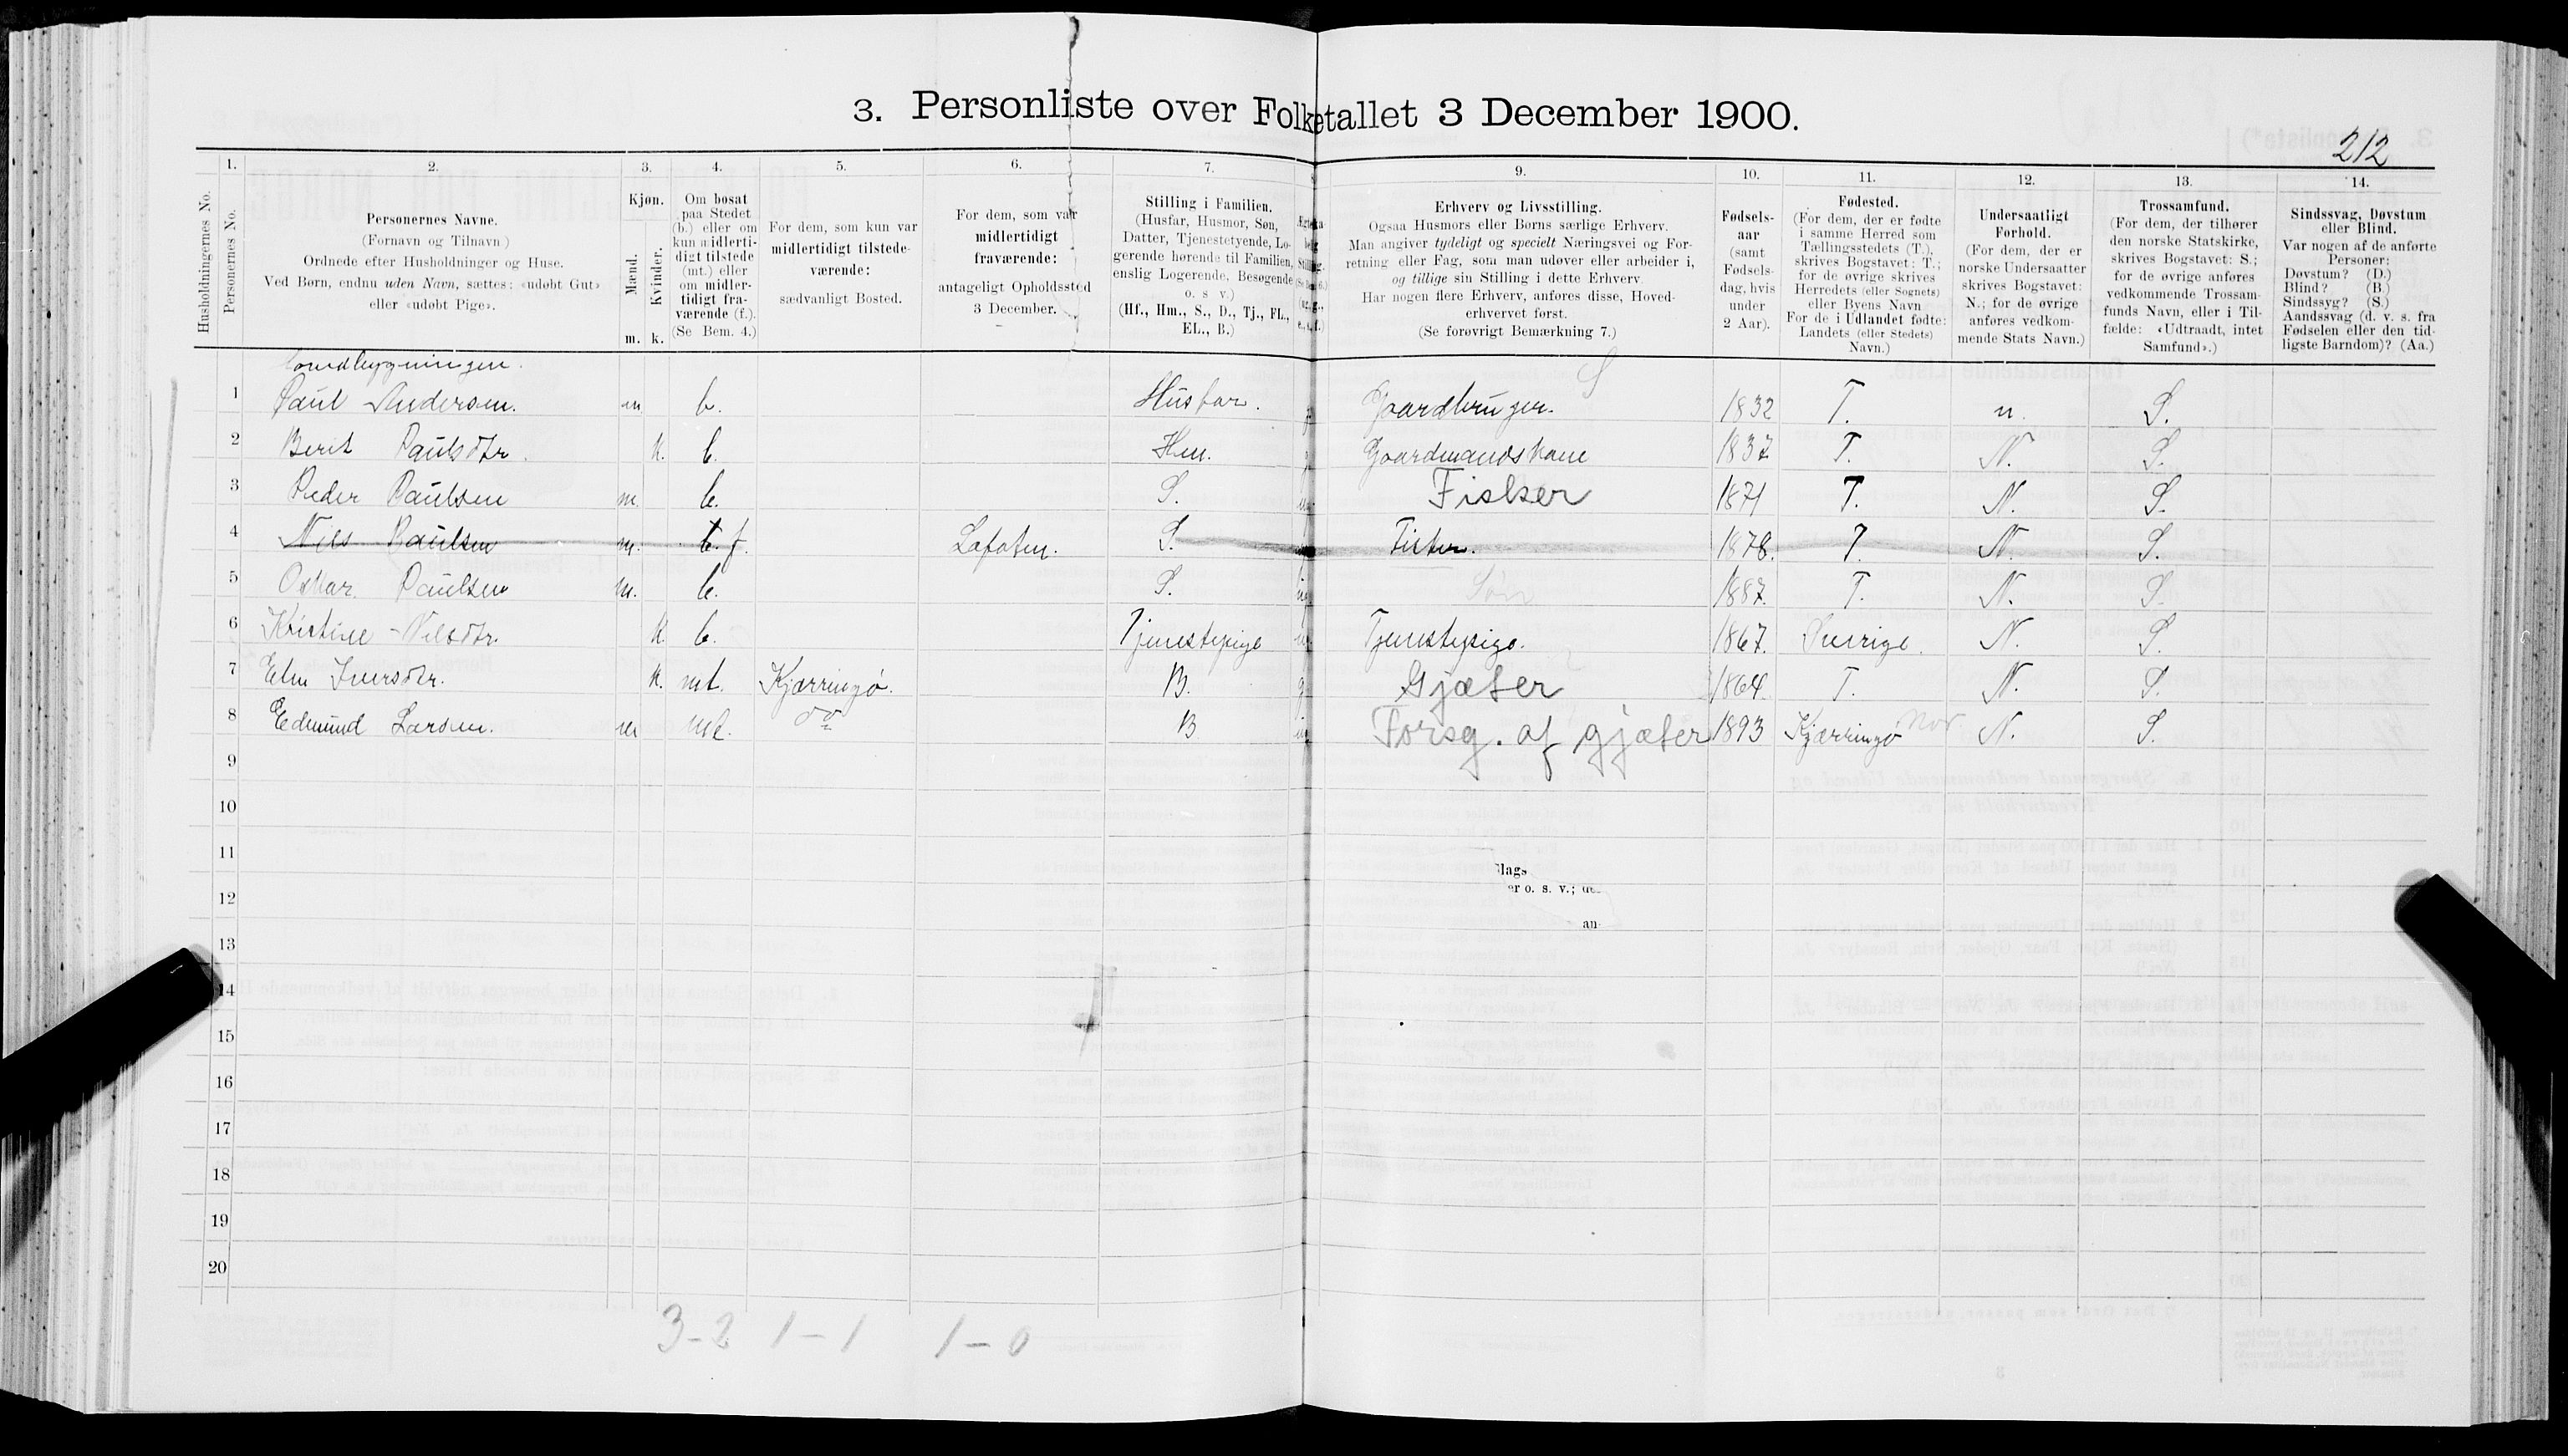 3. Personliste over Folketallet 3 December 1900.
212
1. 2. 3. 4. 5. 6. 7. 9. 10. 11. 12. 13. 14.
Husholdningernes No.
Personernes No.
Personernes Navne.
(Fornavn og Tilnavn)
Ordnede efter Husholdninger og Huse.
Ved Børn, endnu uden Navn, sættes: «udøbt Gut»
eller «udøbt Pige».
Kjøn.
Mænd.
Kvinder.
m. k.
Om bosat
paa Stedet
(b.) eller om
kun midlerti-
digt tilstede
(mt.) eller
om midler-
tidigt fra-
værende (f.).
(Se Bem. 4.)
For dem, som kun var
midlertidigt tilstede-
værende:
sædvanligt Bosted.
For dem, som var
midlertidigt
fraværende:
antageligt Opholdssted
3 December.
Stilling i Familien.
(Husfar, Husmor, Søn,
Datter, Tjenestetyende, Lo-
gerende hørende til Familien,
enslig Logerende, Besøgende
o. s v.)
(Hf., Hm., S., D., Tj., FL.,
EL., B.)
Erhverv og Livsstilling.
Ogsaa Husmors eller Børns særlige Erhverv.
Man angiver tydeligt og specielt Næringsvei og For-
retning eller Fag, som man udøver eller arbeider i,
og tillige sin Stilling i dette Erhverv.
Har nogen flere Erhverv, anføres disse, Hoved-
erhvervet først.
(Se forøvrigt Bemærkning 7.)
Fødsels-
aar
(samt
Fødsels-
dag, hvis
under
2 Aar).
Fødested.
(For dem, der er fødte
i samme Herred som
Tællingsstedets (T.),
skrives Bogstavet: T.;
for de øvrige skrives
Herredets (eller Sognets)
eller Byens Navn
For de i Udlandet fødte:
Landets (eller Stedets)
Navn.)
Undersaatligt
Forhold.
(For dem, der er
norske Undersaatter
skrives Bogstavet:
N.; for de øvrige
anføres vedkom-
mende Stats Navn.)
Trossamfund.
(For dem, der tilhører
den norske Statskirke,
skrives Bogstavet: S.;
for de øvrige anføres
vedkommende Trossam-
funds Navn, eller i Til-
fælde: «Udtraadt, intet
Samfund».)
Sindssvag, Døvstum
eller Blind.
Var nogen af de anførte
Personer:
Døvstum? (D.)
Blind? (B.)
Sindssyg? (S.)
Aandssvag (d. v. s. fra
Fødselen eller den tid-
ligste Barndom)? (Aa.)
1 Paul Andersen. m b. Husfar. Gaardbruger. 1832 T. n. S.
2 Berit Paulsdtr. k. b. Hm. Gaardmandskone 1837 T. N. S.
3 Peder Paulsen m. b. S. Fisker 1871 T. N. S.
4 Nils Paulsen m. b. f. Lofoten. S. Fisker. 1878. T. N. S.
5 Oskar Paulsen m. b. S. Søn 1887. T. N. S.
6 Kristine Nilsdtr. k. b. Tjenestepige Tjenestepige. 1867. Sverige. N. S.
7 Elen Iversdtr. k. mt. Kjærringø. B. g. Gjæter 1864. T. N. S.
8 Edmund Larsen. m mt. do B Forsg. af gjæter 1893 Kjærringø Nor. N. S.
9
10
11
lags
12
er o. s. v.;
an-
13
14
15
16
17
18
19
20
3-2 1-1 1-0